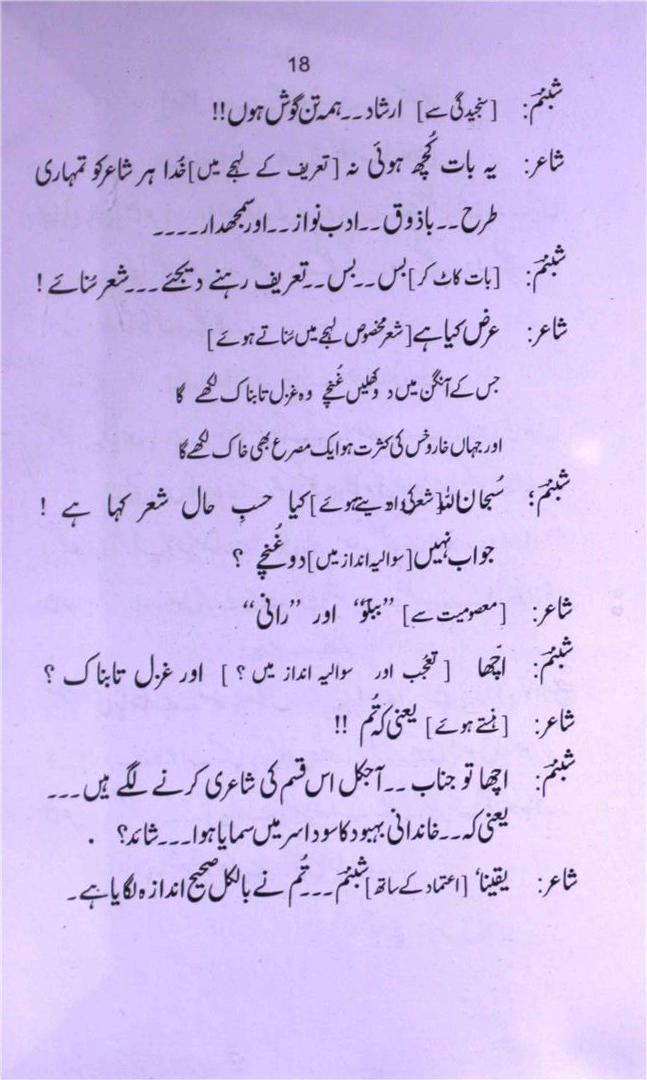 18
شبنم: [سنجیدگی سے] ارشاد۔۔ہمہ تن گوش ہوں!!
شاعر: یہ بات کُچھ ہوئی نہ [تعریف کے لہجے میں] خُدا ہر شاعر کو تمہاری
طرح۔۔باذوق۔۔ادب نواز۔۔اور سمجھدار۔۔۔۔
شبنم: [بات کاٹ کر] بس۔۔بس۔۔تعریف رہنے دیجئے۔۔۔شعر سُنائے!
شاعر: عرض کیا ہے [شعر مخصوص لہجے میں سُناتے ہوئے]
جس کے آنگن میں دو کھلیں غُنچے وہ غزل تابناک لکھے گا
اور جہاں خار و خس کی کثرت ہو ایک مصرع بھی خاک لکھے گا
شبنم: سُبحان اللہ [شعر کی داد دیتے ہوئے] کیا حسبِ حال شعر کہا ہے !
جواب نہیں [سوالیہ انداز میں] دو غُنچے ؟
شاعر: [معصومیت سے] ”ببلو“ اور ”رانی“
شبنم: اچّھا [تعجّب اور سوالیہ انداز میں ؟] اور غزل تابناک ؟
شاعر: [ہنستے ہوئے] یعنی کہ تُم !!
شبنم: اچھا تو جناب۔۔آجکل اس قسم کی شاعری کرنے لگے ہیں۔۔۔
یعنی کہ۔۔خاندانی بہبود کا سودا سر میں سمایا ہوا۔۔۔شائد؟ .
شاعر: یقیناً [اعتماد کے ساتھ] شبنم۔۔۔تُم نے بالکل صحیح اندازہ لگایا ہے۔